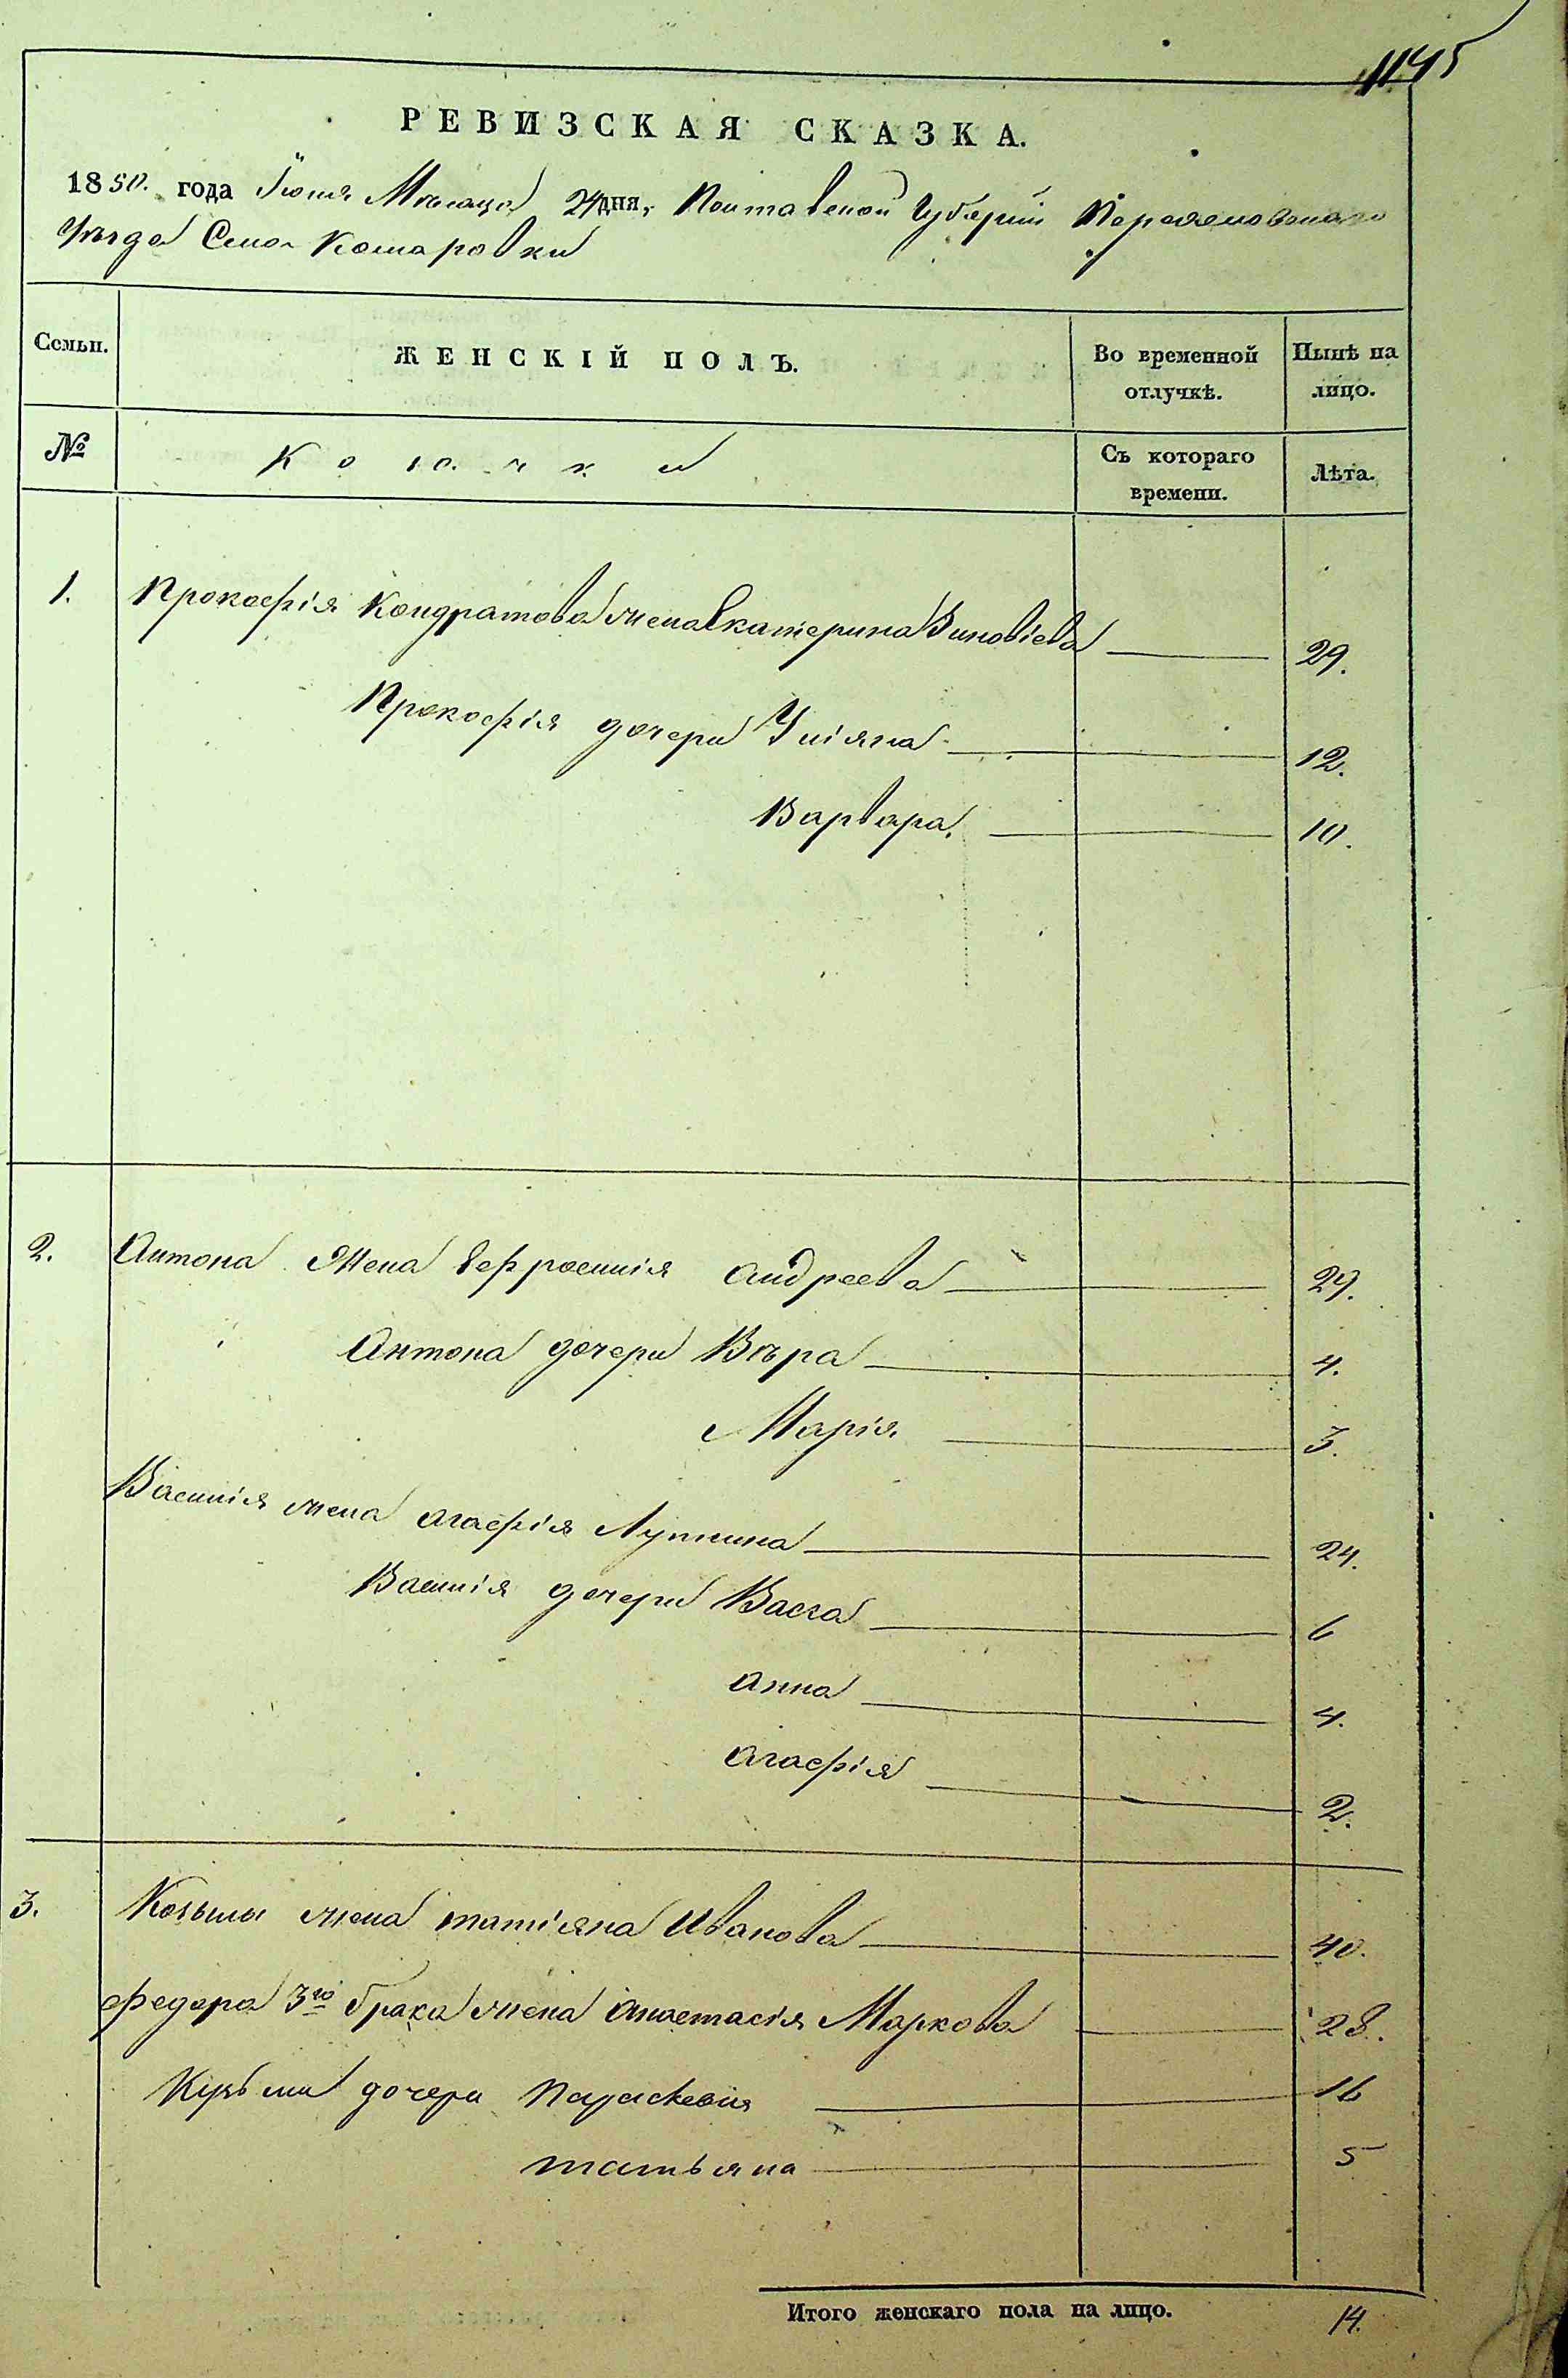 1145
РЕВИЗСКАЯ СКАЗКА.
1850. года Іюня Мѣсяца 24 дня, Полтавской Губерніи Переяславскаго
Уѣзда Села Комаровки
Семьи. ЖЕНСКІЙ ПОЛЪ. Во временной отлучкѣ. Нынѣ на лицо.
№ Козачки Съ котораго времени. Лѣта.
1. Прокофія Кондратова жена Екатерина Зиновіева 29.
Прокофія дочери Уліяна 12.
Варвара. 10.
2. Антона жена Ефросинія Андреева 29.
Антона дочери Вѣра 4.
Марія 3.
Василія жена Агафія Лукина 24.
Василія дочери Васса 6
Анна 4.
Агафія 2.
3. Козьмы жена татіяна Иванова 40.
Федора 3го брака жена Анастасія Маркова 28.
Кузьмы дочери Параскевия 16
татьяна 5
Итого женскаго пола на лицо. 14.